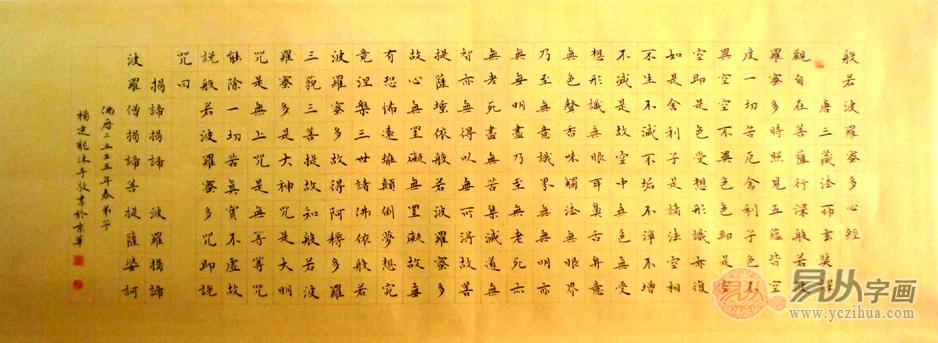 般若波羅蜜多心經
唐三藏法師玄奘譯
觀自在菩薩行深般若波
羅蜜多時照見五蘊皆空
度一切苦厄舍利子色不
異空空不異色色即是空
空即是色受想形識亦復
如是舍利子是諸法空相
不生不滅不垢不淨不增
不減是故空中無色無受
想形識無眼耳鼻舌身意
無色聲香味觸法無眼界
乃至無意識界無無明亦
無無明盡乃至無老死亦
無老死盡無苦集滅道無
智亦無得以無所得故菩
提薩埵依般若波羅蜜多
故心無罣礙無罣礙故無
有恐怖遠離顛倒夢想究
竟涅槃三世諸佛依般若
波羅蜜多故得阿耨多羅
三藐三菩提故知般若波
羅蜜多是大神咒是大明
咒是無上咒是無等等咒
能除一切苦真實不虛故
說般若波羅蜜多咒即說
咒曰
揭諦揭諦 波羅揭諦
波羅僧揭諦菩提薩婆訶
佛曆二五五五年春弟子
楊建龍沐手敬書於京華
易从字画
www.yczihua.com